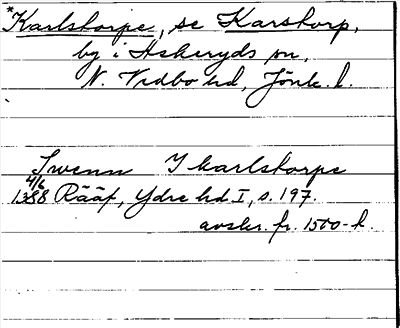 *Karlstorpe, se Karstorp,
by i Askeryds sn,
N. Vedbo hd, Jönk. l.
Swenn I karlstorpe
4/6
1388 Rääf, Ydre hd I, s. 197.
avskr. fr. 1500-t.